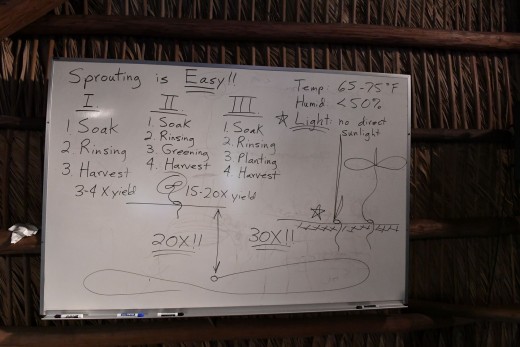 Sprouting is Easy!!
I
1. Soak
2. Rinsing
3. Harvest
3-4 X yield
II
1. Soak
2. Rinsing
3. Greening
4. Harvest
15-20X yield
20X!!
III
1. Soak
2. Rinsing
3. Planting
4. Harvest
30X!!
Temp: 65-75°F
Humid <50%
Light: no direct
sunlight